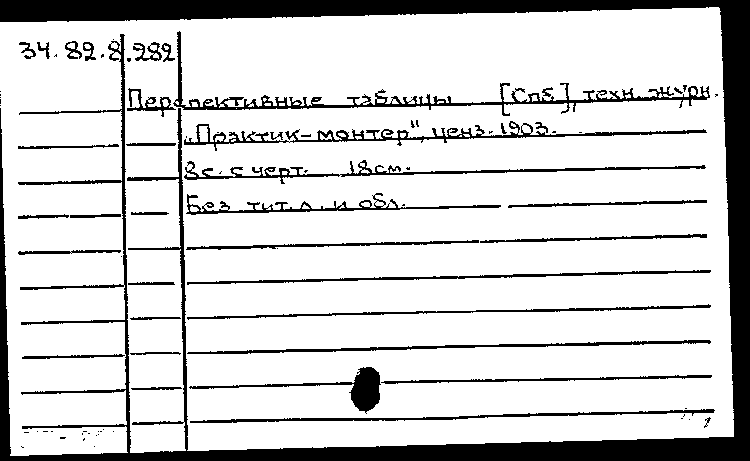 34.82.8.282
Перспективные таблицы [Спб], техн. журн.
„Практик-монтер", ценз. 1903.
8с. с черт. 18см.
Без тит. л. и обл.